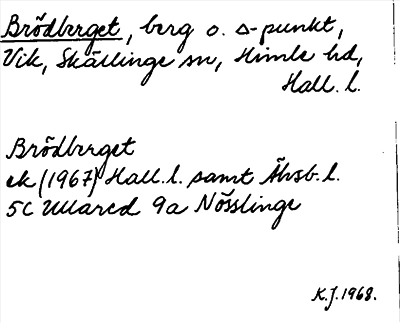 Brödberget, berg o. △-punkt,
Vik, Skällinge sn, Himle hd,
Hall. l.
Brödberget
ek (1967) Hall.l. samt Älvsb. l.
5C Ullared 9a Nösslinge
K.J. 1968.